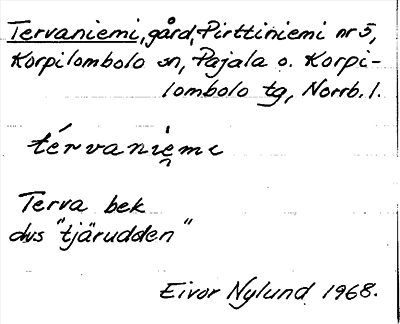 Tervaniemi, gård, Pirttiniemi nr 5,
Korpilombolo sn, Pajala o. Korpi-
lombolo tg, Norrb. l.
térvani̯emi
Terva bek
dvs "tjärudden"
Eivor Nylund 1968.